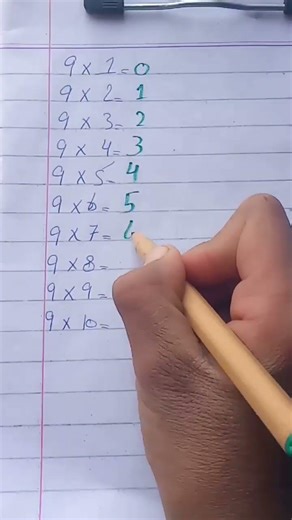 9 × 1 = 0
9 × 2 = 1
9 × 3 = 2
9 × 4 = 3
9 × 5 = 4
9 × 6 = 5
9 × 7 = 6
9 × 8 =
9 × 9 =
9 × 10 =